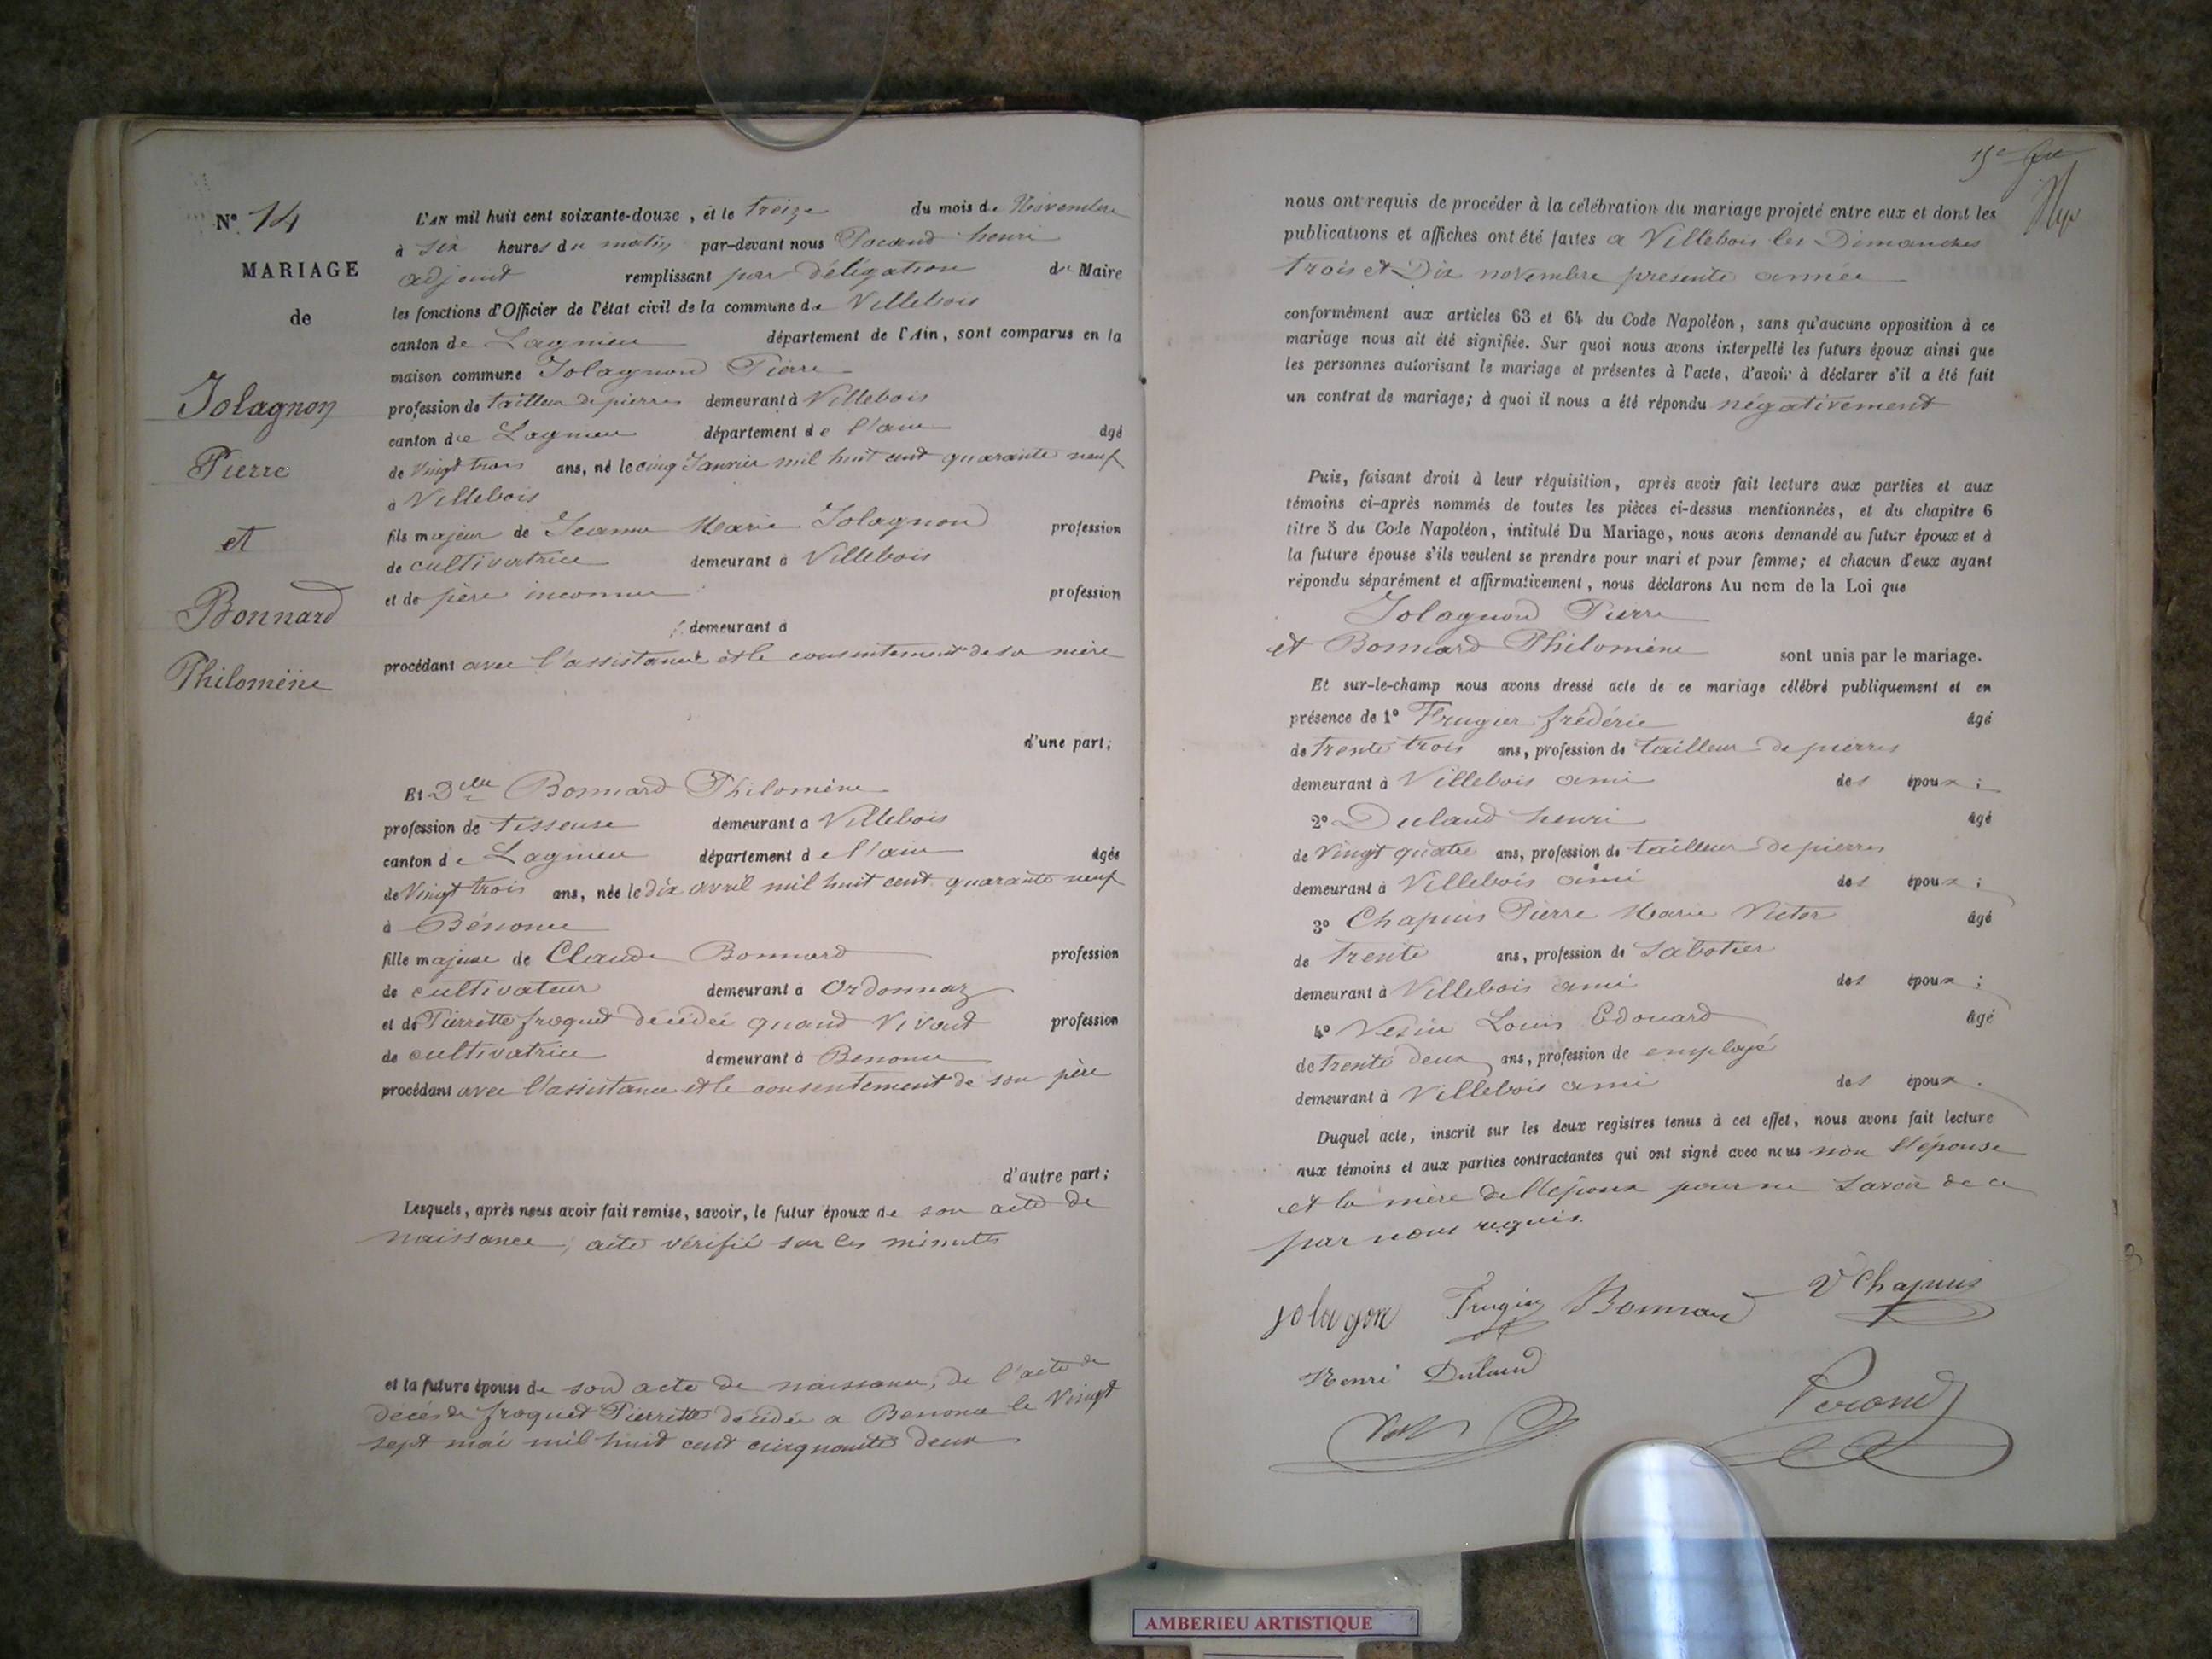 N° 14
MARIAGE
de
Jolagnon
Pierre
et
Bonnard
Philomène
L'AN mil huit cent soixante-douze, et le treize du mois de Novembre
à six heures du matin par-devant nous Pocand henri
adjoint remplissant par délégation du Maire
les fonctions d'Officier de l'état civil de la commune de Villebois
canton de Lagnieu département de l'Ain, sont comparus en la
maison commune Jolagnon Pierre
profession de tailleur de pierres demeurant à Villebois
canton de Lagnieu département de l'ain âgé
de Vingt trois ans, né le cinq Janvier mil huit cent quarante neuf
à Villebois
fils majeur de Jeanne Marie Jolagnon profession
de cultivatrice demeurant à Villebois
et de père inconnu profession
demeurant à
procédant avec l'assistance et le consentement de sa mère
d'une part;
Et Delle Bonnard Philomène
profession de tisseuse demeurant à Villebois
canton de Lagnieu département de l'ain âgée
de Vingt trois ans, née le dix avril mil huit cent quarante neuf
à Bénonce
fille majeure de Claude Bonnard profession
de cultivateur demeurant à Ordonnaz
et de Pierrette froquet décédée quand Vivait profession
de cultivatrice demeurant à Benonce
procédant avec l'assistance et le consentement de son père
d'autre part;
Lesquels, après nous avoir fait remise, savoir, le futur époux de son acte de
naissance, acte vérifié sur les minutes
et la future épouse de son acte de naissance, de l'acte de
décès de froquet Pierrette décédée a Benonce le Vingt
sept mai mil huit cent cinquante deux
15e
nous ont requis de procéder à la célébration du mariage projeté entre eux et dont les
publications et affiches ont été faites a Villebois les Dimanches
trois et Dix novembre présente année
conformément aux articles 63 et 64 du Code Napoléon, sans qu'aucune opposition à ce
mariage nous ait été signifiée. Sur quoi nous avons interpellé les futurs époux ainsi que
les personnes autorisant le mariage et présentes à l'acte, d'avoir à déclarer s'il a été fait
un contrat de mariage; à quoi il nous a été répondu négativement
Puis, faisant droit à leur réquisition, après avoir fait lecture aux parties et aux
témoins ci-après nommés de toutes les pièces ci-dessus mentionnées, et du chapitre 6
titre 5 du Code Napoléon, intitulé Du Mariage, nous avons demandé au futur époux et à
la future épouse s'ils veulent se prendre pour mari et pour femme; et chacun d'eux ayant
répondu séparément et affirmativement, nous déclarons Au nom de la Loi que
Jolagnon Pierre
et Bonnard Philomène sont unis par le mariage.
Et sur-le-champ nous avons dressé acte de ce mariage célébré publiquement et en
présence de 1° Frugier frédéric âgé
de trente trois ans, profession de tailleur de pierres
demeurant à Villebois ami des époux;
2° Duland henri âgé
de Vingt quatre ans, profession de tailleur de pierres
demeurant à Villebois ami des époux;
3° Chapuis Pierre Marie Victor âgé
de trente ans, profession de Sabotier
demeurant à Villebois ami des époux;
4° Vesin Louis Edouard âgé
de trente deux ans, profession de employé
demeurant à Villebois ami des époux.
Duquel acte, inscrit sur les deux registres tenus à cet effet, nous avons fait lecture
aux témoins et aux parties contractantes qui ont signé avec nous non l'épouse
et la mère de l'époux pour ne savoir de ce
par nous requis.
jolagon Frugier Bonnard V Chapuis
Henri Duland
AMBERIEU ARTISTIQUE